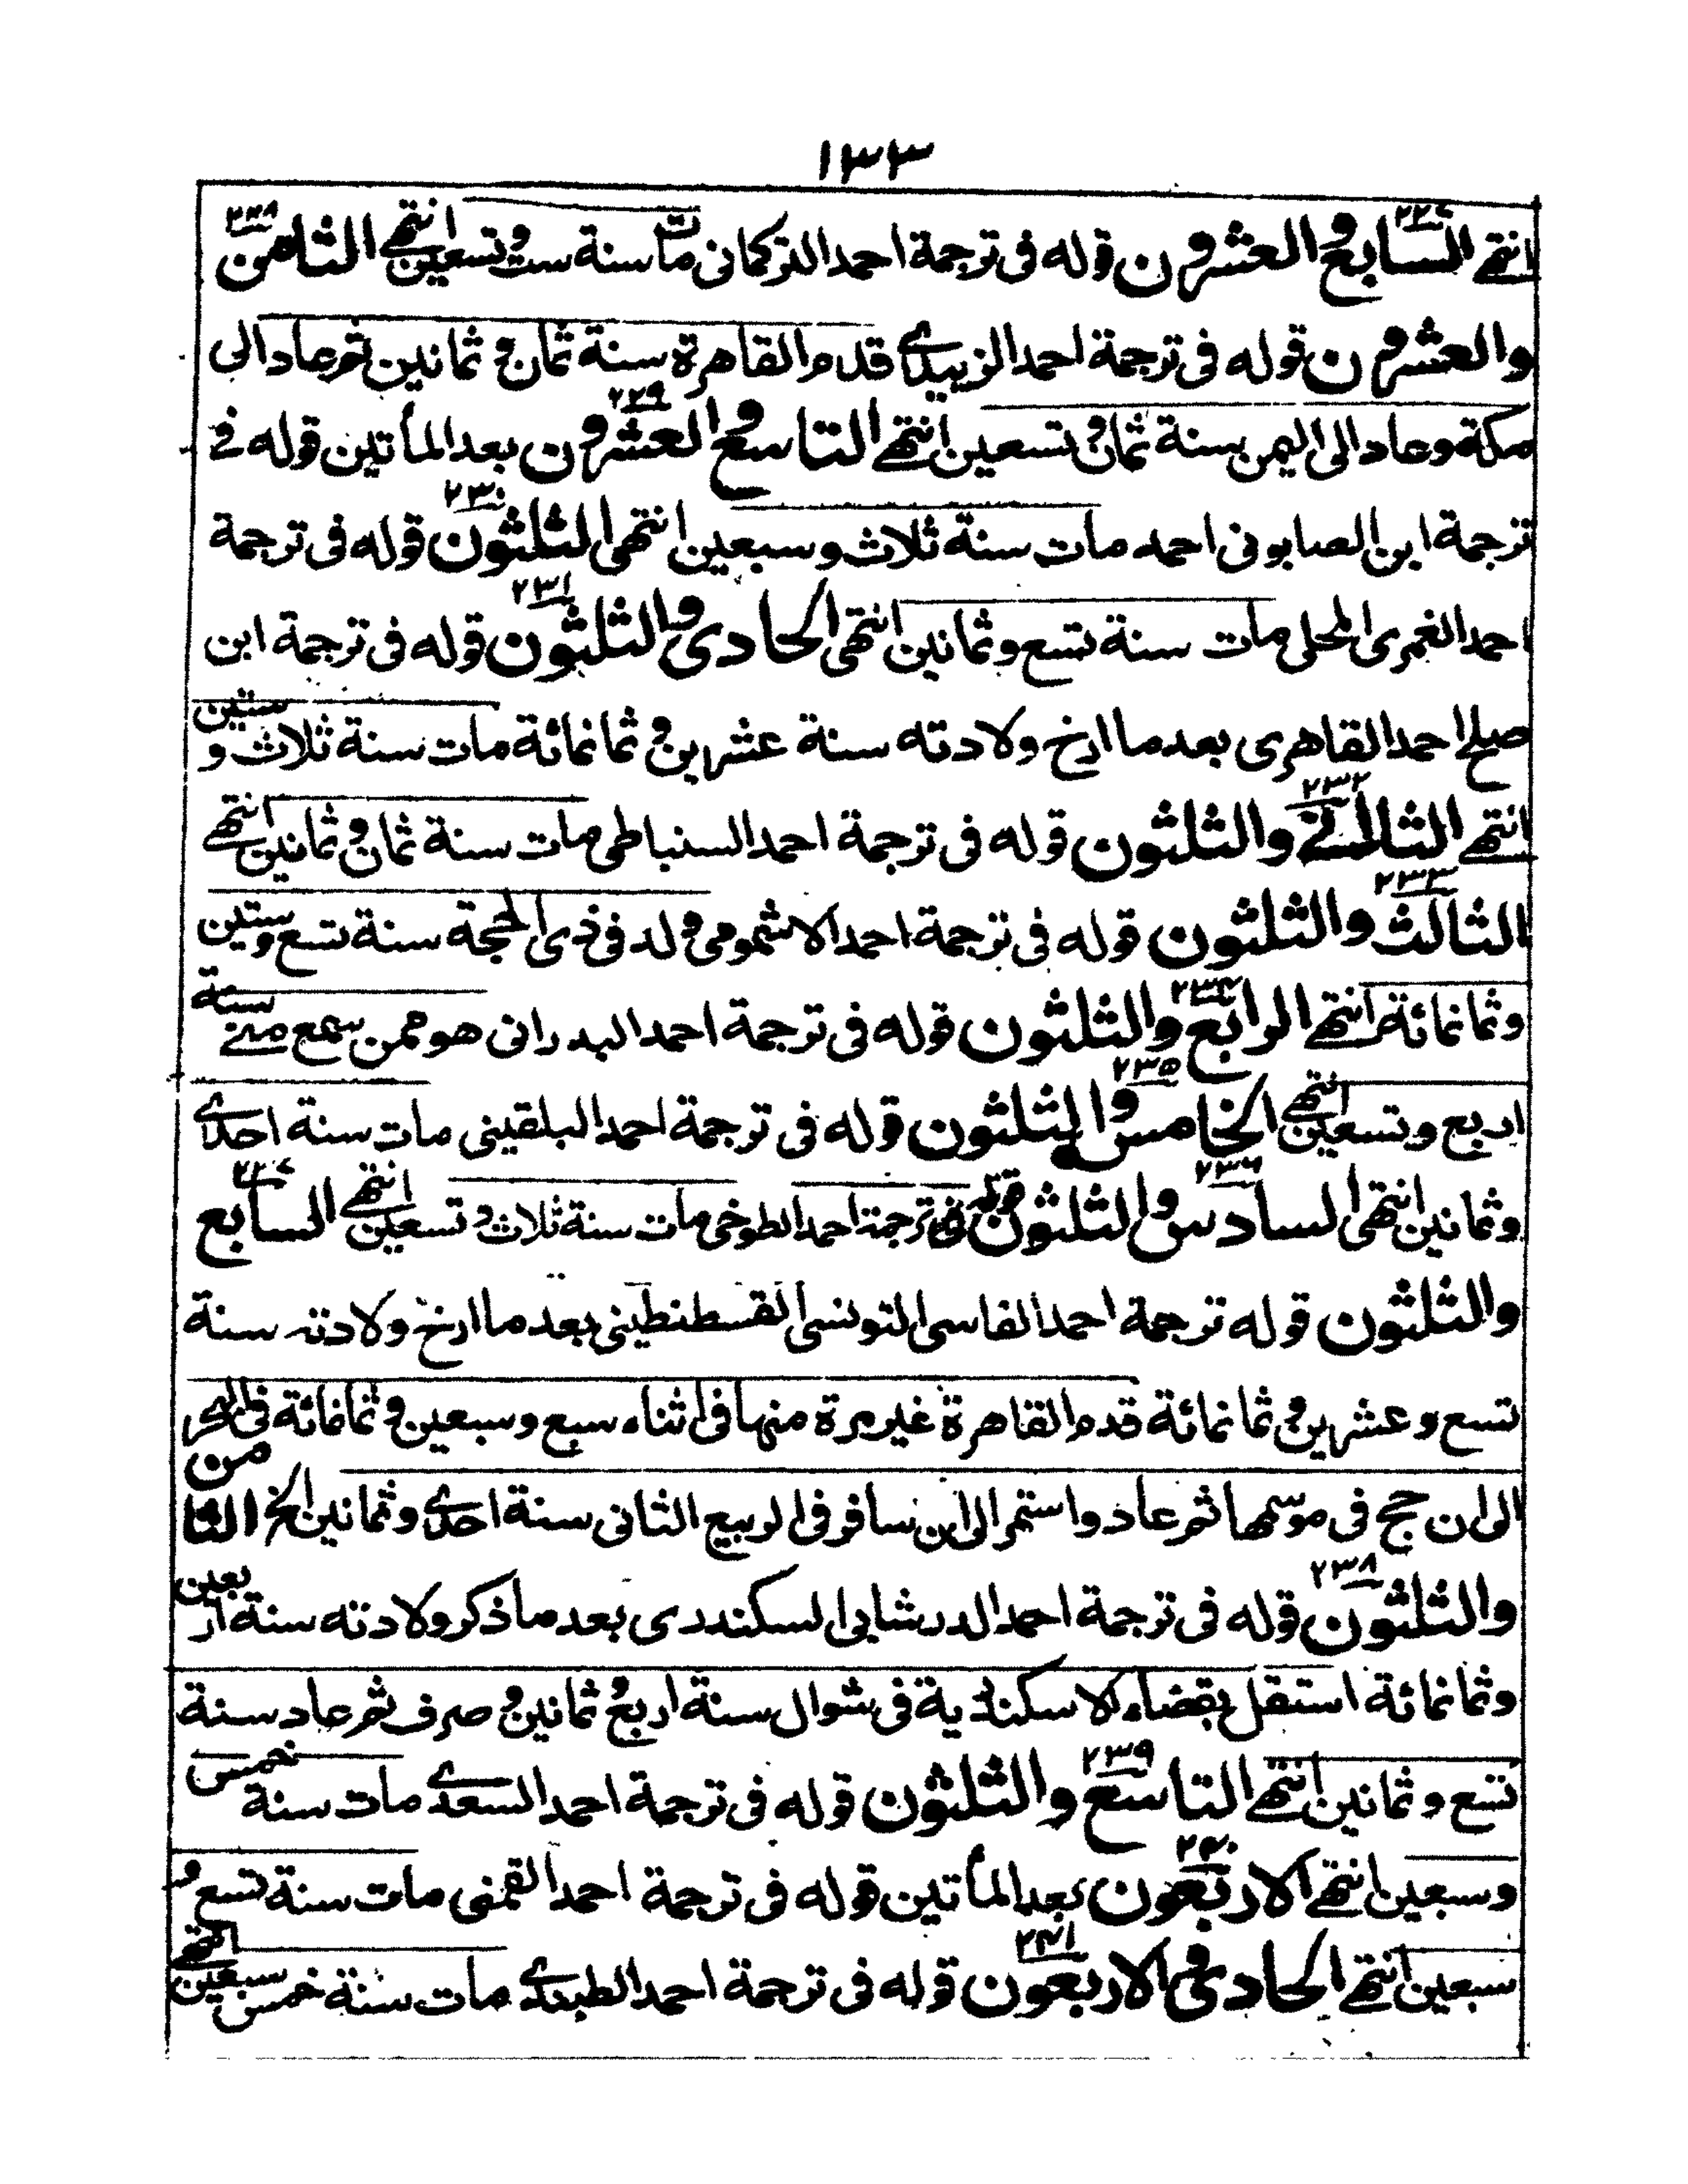 ١٣٣
انتهى السابع والعشرون قوله فى ترجمة احمد التركمانى مات سنة ست وتسعين انتهى الثامن
والعشرون قوله فى ترجمة احمد الزبيدى قدم القاهرة سنة ثمان وثمانين ثم عاد الى
مكة وعاد الى اليمن سنة ثمان وتسعين انتهى التاسع والعشرون بعد المأتين قوله فى
ترجمة ابن الصابونى احمد مات سنة ثلاث وسبعين انتهى الثلثون قوله فى ترجمة
احمد الغمرى المحلى مات سنة تسع وثمانين انتهى الحادى والثلثون قوله فى ترجمة ابن
صلح احمد القاهرى بعد ما ارخ ولادته سنة عشرين وثمانمائة مات سنة ثلاث وستين
انتهى الثانى والثلثون قوله فى ترجمة احمد السنباطى مات سنة ثمان وثمانين انتهى
الثالث والثلثون قوله فى ترجمة احمد الاشمومى ولد فى ذى الحجة سنة تسع وستين
وثمانمائة انتهى الرابع والثلثون قوله فى ترجمة احمد البدرانى هو ممن سمع منى سنة
اربع وتسعين انتهى الخامس والثلثون قوله فى ترجمة احمد البلقينى مات سنة احدى
وثمانين انتهى السادس والثلثون قوله فى ترجمة احمد الطوخى مات سنة ثلاث وتسعين انتهى السابع
والثلثون قوله ترجمة احمد الفاسى التونسى القسطنطينى بعد ما ارخ ولادته سنة
تسع وعشرين وثمانمائة قدم القاهرة غير مرة منها فى اثناء سبع وسبعين وثمانمائة فى البحر
الى ان حج فى موسمها ثم عاد واستمر الى ان سافر فى الربيع الثانى سنة احدى وثمانين الخ الثامن
والثلثون قوله فى ترجمة احمد الدرشابى السكندرى بعد ما ذكر ولادته سنة اربعين
وثمانمائة استقل بقضاء الاسكندرية فى شوال سنة اربع وثمانين وصرف ثم عاد سنة
تسع وثمانين انتهى التاسع والثلثون قوله فى ترجمة احمد السعدى مات سنة خمس
وسبعين انتهى الاربعون بعد المأتين قوله فى ترجمة احمد القمنى مات سنة تسع و
سبعين انتهى الحادى والاربعون قوله فى ترجمة احمد الطبندى مات سنة خمس سبعين انتهى